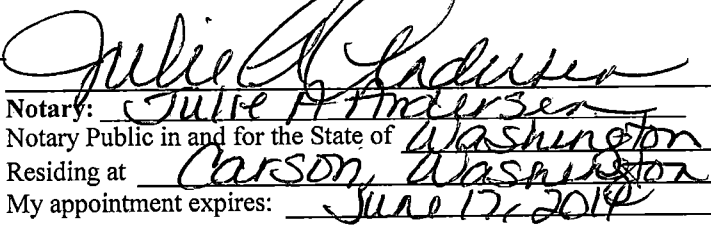 Julie A Andersen
Notary: Julie A Andersen
Notary Public in and for the State of Washington
Residing at Carson, Washington
My appointment expires: June 17, 2014